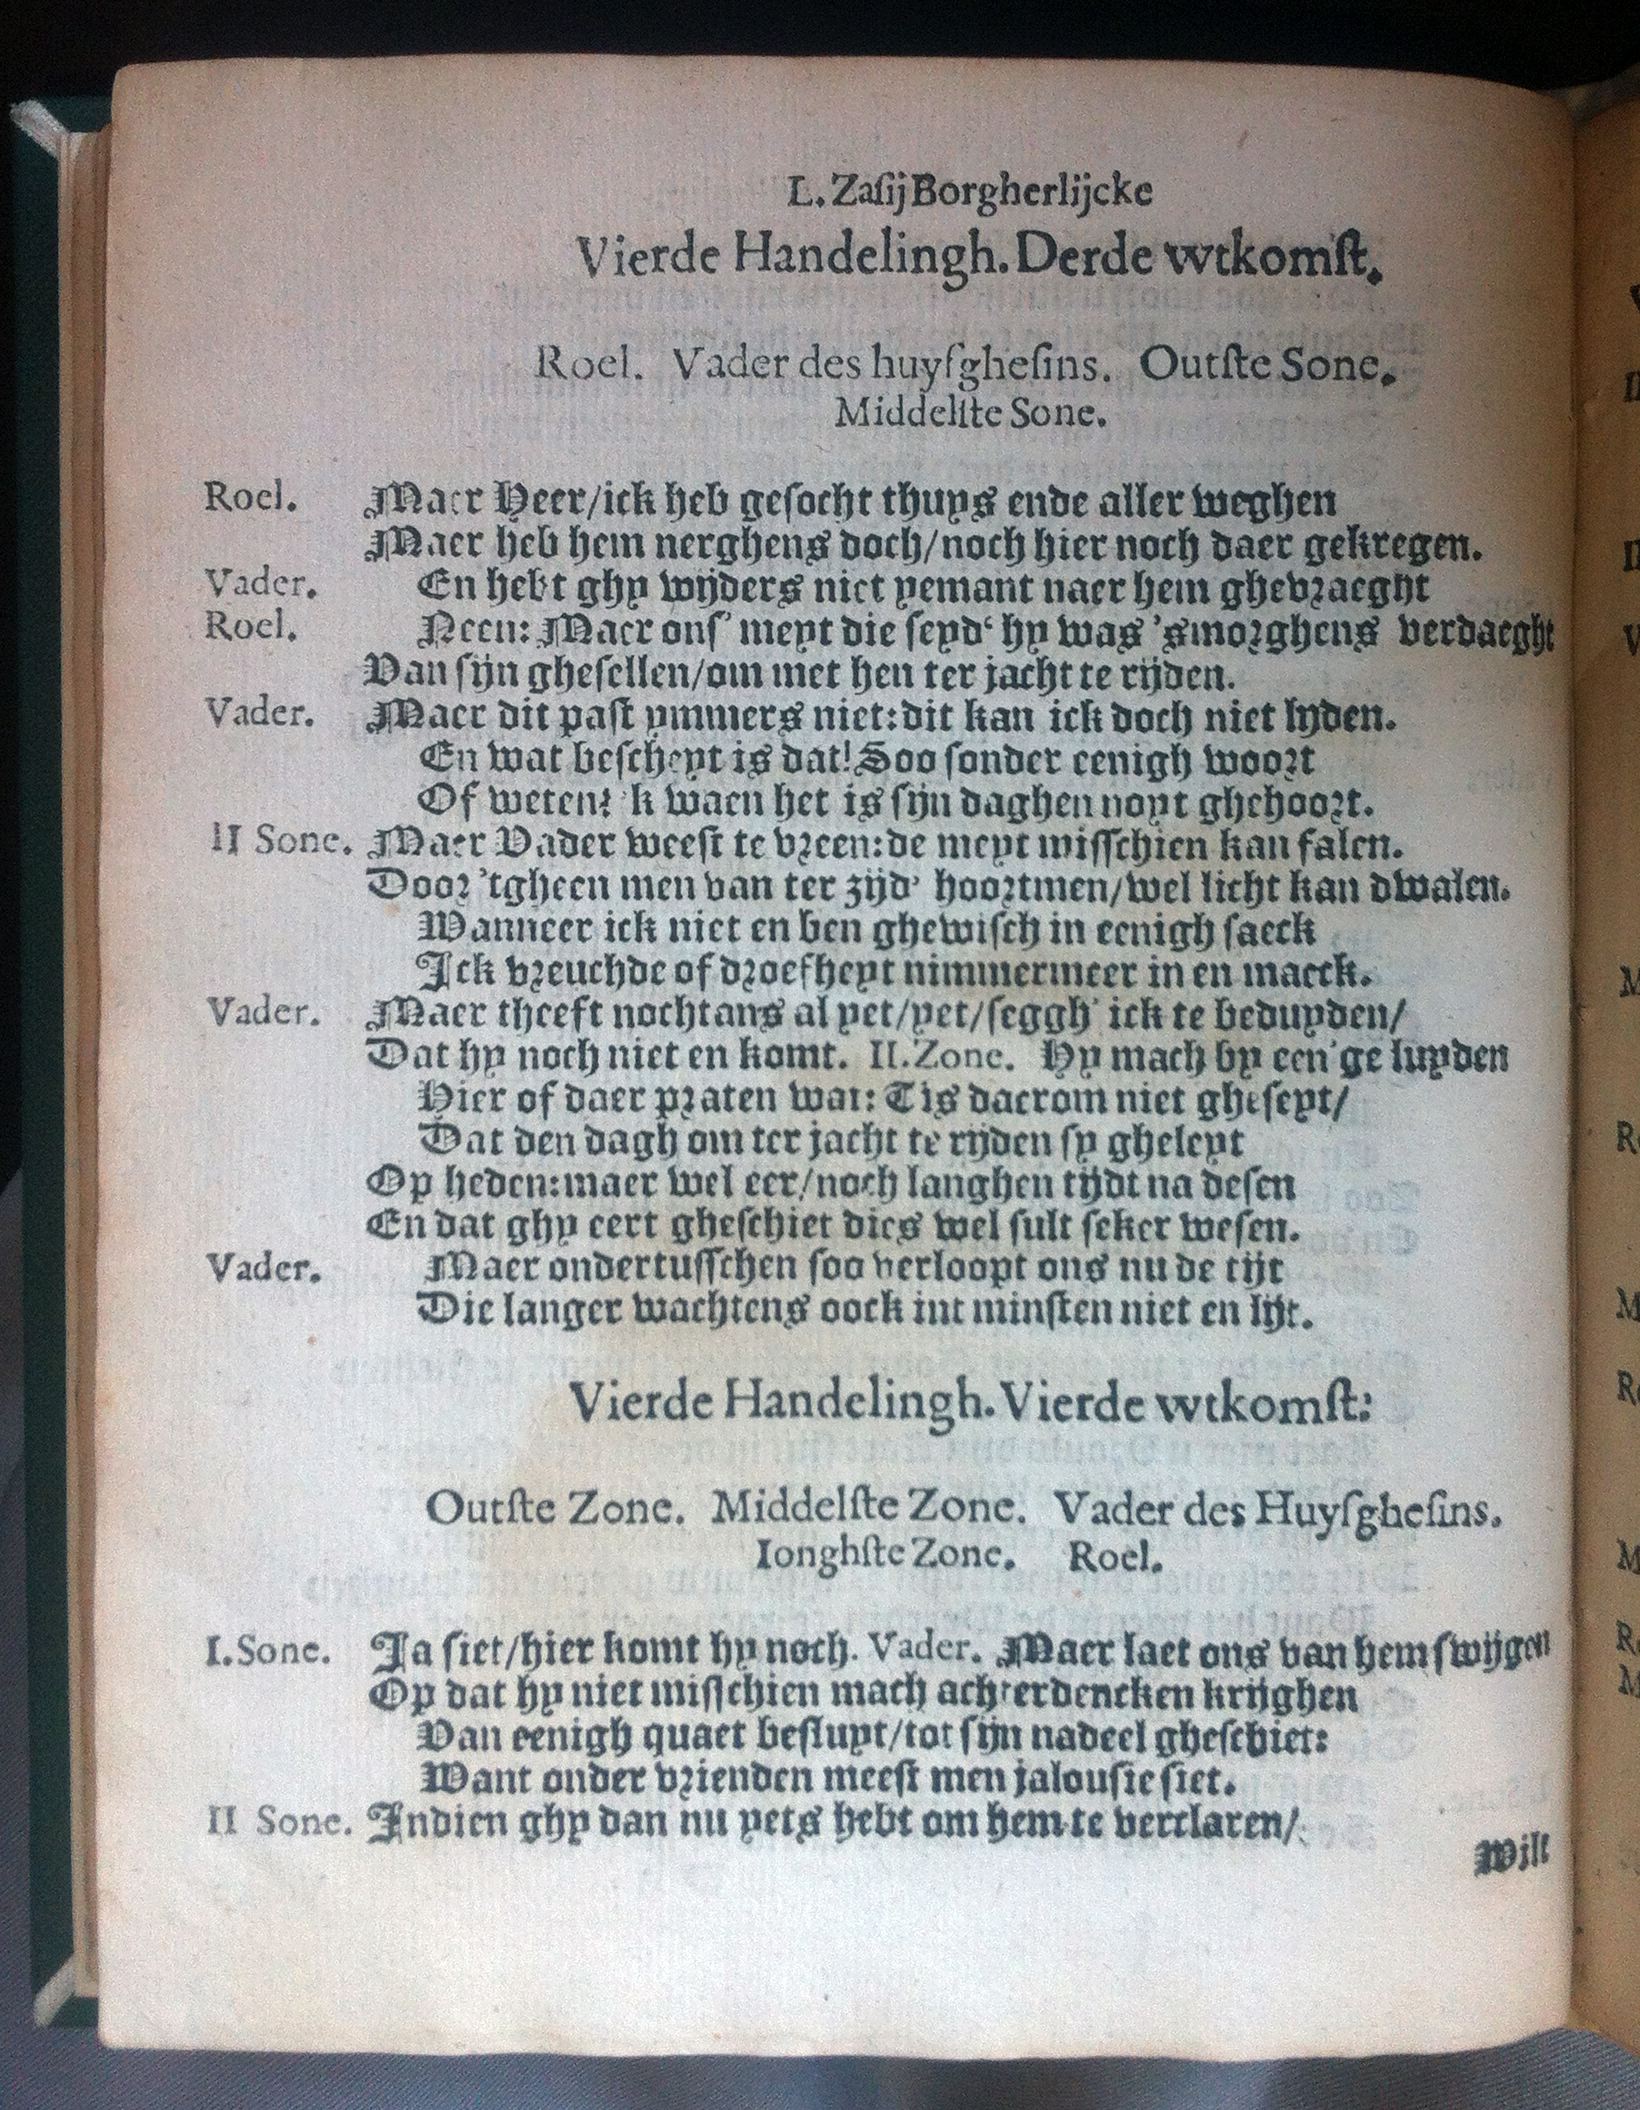 L. Zasij Borgherlijcke
Vierde Handelingh. Derde wtkomst.
Roel. Vader des huysghesins. Outste Sone.
Middelste Sone.
Roel. Maer Heer/ick heb gesocht thuys ende aller weghen
Maer heb hem nerghens doch/noch hier noch daer gekregen.
Vader. En hebt ghy wijders niet yemant naer hem ghevraeght
Roel. Neen: Maer ons' meyt die seyd' hy was 'smorghens verdaeght
Van sijn ghesellen/om met hen ter jacht te rijden.
Vader. Maer dit past ymmers niet: dit kan ick doch niet lyden.
En wat bescheyt is dat! Soo sonder eenigh woort
Of weten! 'k waen het is sijn daghen noyt ghehoort.
II Sone. Maer Vader weest te vreen: de meyt misschien kan falen.
Door 'tgheen men van ter zijd' hoortmen/wel licht kan dwalen.
Wanneer ick niet en ben ghewisch in eenigh saeck
Ick vreuchde of droefheyt nimmermeer in en maeck.
Vader. Maer theeft nochtans al yet/yet/seggh' ick te beduyden/
Dat hy noch niet en komt. II. Zone. Hy mach by een'ge luyden
Hier of daer praten wat: Tis daerom niet gheseyt/
Dat den dagh om ter jacht te rijden sy gheleyt
Op heden: maer wel eer/noch langhen tijdt na desen
En dat ghy eert gheschiet dies wel sult seker wesen.
Vader. Maer ondertusschen soo verloopt ons nu de tijt
Die langer wachtens oock int minsten niet en lijt.
Vierde Handelingh. Vierde wtkomst:
Outste Zone. Middelste Zone. Vader des Huysghesins.
Ionghste Zone. Roel.
I. Sone. Ja siet/hier komt hy noch. Vader. Maer laet ons van hem swijgen
Op dat hy niet misschien mach achterdencken krijghen
Van eenigh quaet besluyt/tot sijn nadeel gheschiet:
Want onder vrienden meest men jalousie siet.
II Sone. Indien ghy dan nu yets hebt om hem te verclaren/
Wilt